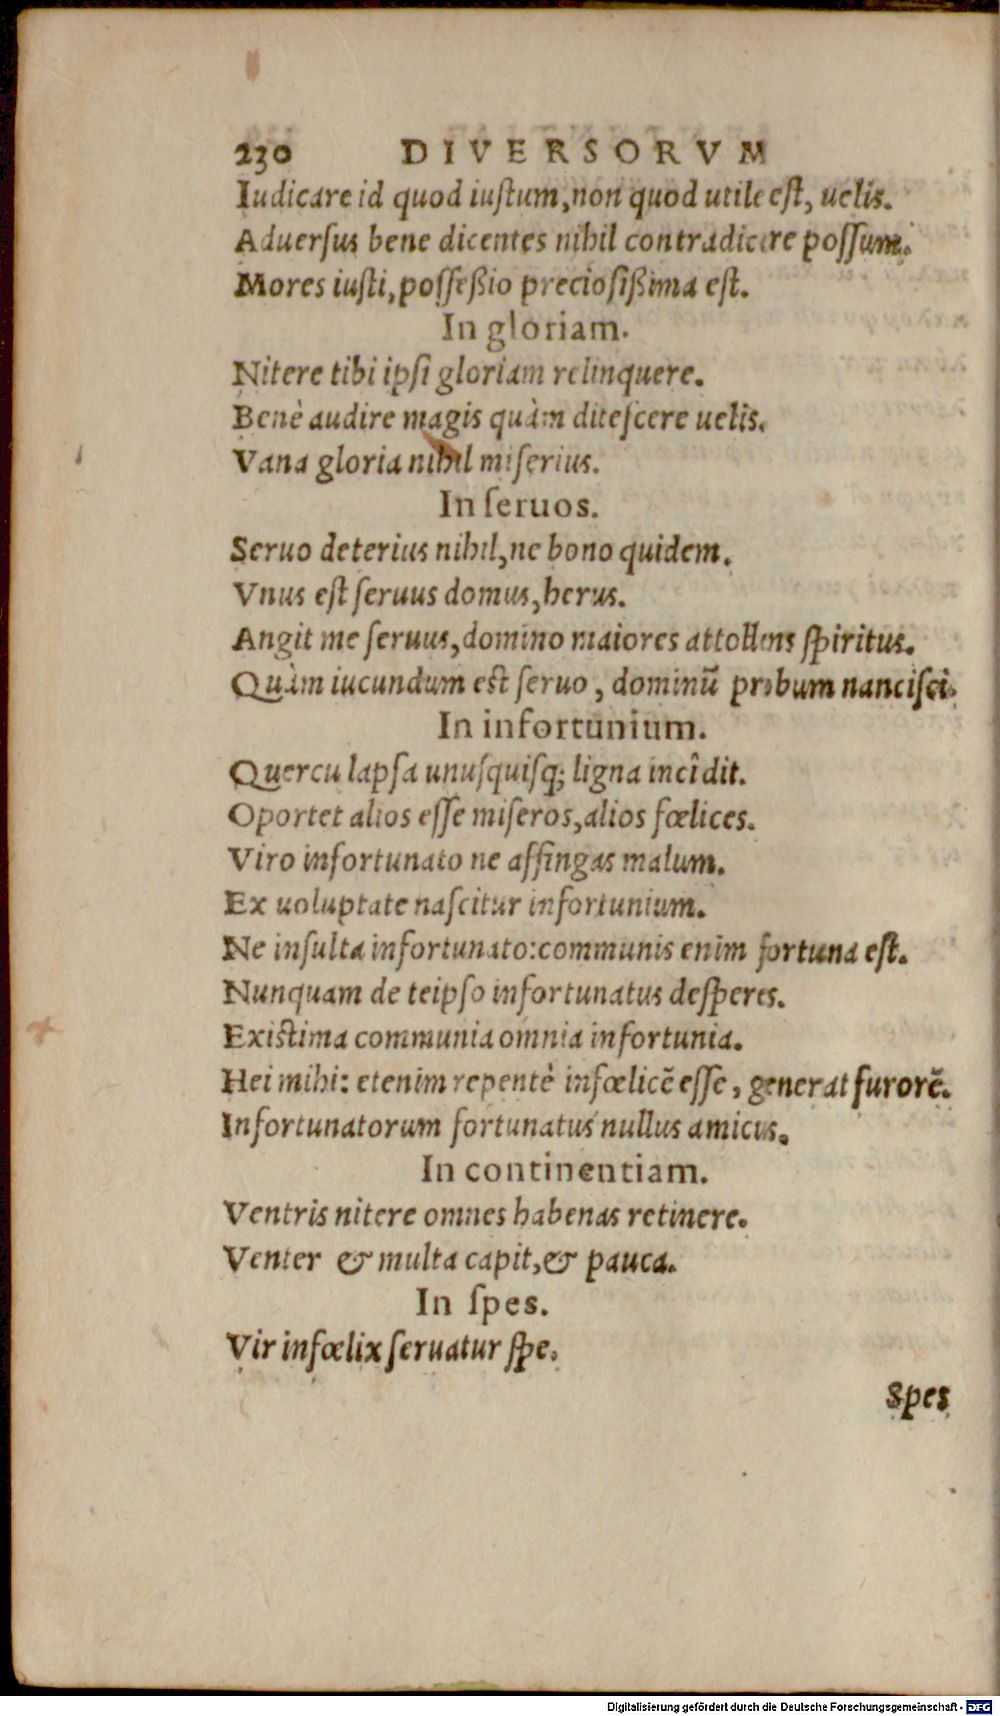 230 DIVERSORVM
Iudicare id quod iustum, non quod utile est, uelis.
Aduersus bene dicentes nihil contradicere possum.
Mores iusti, possessio preciosissima est.
In gloriam.
Nitere tibi ipsi gloriam relinquere.
Benè audire magis quàm ditescere uelis.
Vana gloria nihil miserius.
In seruos.
Seruo deterius nihil, ne bono quidem.
Vnus est seruus domus, herus.
Angit me seruus, domino maiores attollens spiritus.
Quàm iucundum est seruo, dominũ probum nancisci.
In infortunium.
Quercu lapsa unusquisq; ligna incîdit.
Oportet alios esse miseros, alios fœlices.
Viro infortunato ne affingas malum.
Ex uoluptate nascitur infortunium.
Ne insulta infortunato: communis enim fortuna est.
Nunquam de teipso infortunatus desperes.
Existima communia omnia infortunia.
Hei mihi: etenim repentè infœlicẽ esse, generat furorẽ.
Infortunatorum fortunatus nullus amicus.
In continentiam.
Ventris nitere omnes habenas retinere.
Venter & multa capit, & pauca.
In spes.
Vir infœlix seruatur spe.
Spes
Digitalisierung gefördert durch die Deutsche Forschungsgemeinschaft - DFG